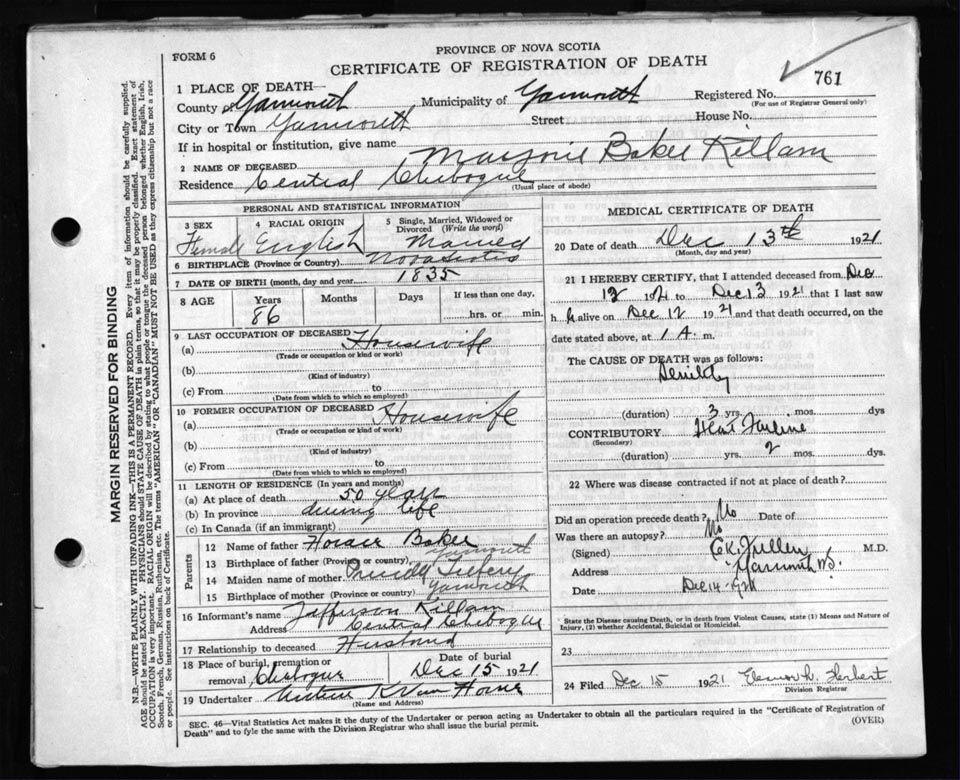 PROVINCE OF NOVA SCOTIA
FORM 6
CERTIFICATE OF REGISTRATION OF DEATH
761
1 PLACE OF DEATH—
County of Yarmouth Municipality of Yarmouth Registered No.
(For use of Registrar General only)
City or Town Yarmouth Street House No.
If in hospital or institution, give name
2 NAME OF DECEASED Marjorie Baker Killam
Residence Central Chebogue
(Usual place of abode)
PERSONAL AND STATISTICAL INFORMATION
3 SEX Female
4 RACIAL ORIGIN English
5 Single, Married, Widowed or Divorced (Write the word) Married
6 BIRTHPLACE (Province or Country) Nova Scotia
7 DATE OF BIRTH (month, day and year) 1835
8 AGE Years 86 Months Days If less than one day, hrs. or min.
9 LAST OCCUPATION OF DECEASED
(a) Housewife
(Trade or occupation or kind or work)
(b)
(Kind of industry)
(c) From to
(Date from which to which so employed)
10 FORMER OCCUPATION OF DECEASED
(a) Housewife
(Trade or occupation or kind or work)
(b)
(Kind of industry)
(c) From to
(Date from which to which so employed)
11 LENGTH OF RESIDENCE (In years and months)
(a) At place of death 50 years
(b) In province during life
(c) In Canada (if an immigrant)
Parents
12 Name of father Horace Baker
13 Birthplace of father (Province or country) Yarmouth
14 Maiden name of mother
15 Birthplace of mother (Province or country) Yarmouth
16 Informant's name Jefferson Killam
Address Central Chebogue
17 Relationship to deceased Husband
18 Place of burial, cremation or removal Chebogue Date of burial Dec 15 1921
19 Undertaker Van Horne
(Name and Address)
MEDICAL CERTIFICATE OF DEATH
20 Date of death Dec 13th 1921
(Month, day and year)
21 I HEREBY CERTIFY, that I attended deceased from Dec
12 1921 to Dec 13 1921 that I last saw
h alive on Dec 12 1921 and that death occurred, on the
date stated above, at 1 A. m.
The CAUSE OF DEATH was as follows:
Senility
(duration) 3 yrs. mos. dys
CONTRIBUTORY Heart Failure
(Secondary)
(duration) yrs. 2 mos. dys.
22 Where was disease contracted if not at place of death?
Did an operation precede death? No Date of
Was there an autopsy? No
(Signed) M.D.
Address Yarmouth N.S.
Date Dec 14 - 1921
State the Disease causing Death, or in death from Violent Causes, state (1) Means and Nature of
Injury, (2) whether Accidental, Suicidal or Homicidal.
23
24 Filed Dec 15 1921 Herbert
Division Registrar
SEC. 46—Vital Statistics Act makes it the duty of the Undertaker or person acting as Undertaker to obtain all the particulars required in the "Certificate of Registration of
Death" and to fyle the same with the Division Registrar who shall issue the burial permit.
(OVER)
MARGIN RESERVED FOR BINDING
N.B.—WRITE PLAINLY WITH UNFADING INK—THIS IS A PERMANENT RECORD. Every item of information should be carefully supplied.
AGE should be stated EXACTLY. PHYSICIANS should STATE CAUSE OF DEATH in plain terms, so that it may be properly classified. Exact statement of
OCCUPATION is very important. RACIAL ORIGIN will be described by stating to what people or tongue the deceased person belonged whether English, Irish,
Scotch, French, German, Russian, Ruthenian, etc. The terms "AMERICAN" OR "CANADIAN" MUST NOT BE USED as they express citizenship but not a race
or people. See instructions on back of Certificate.